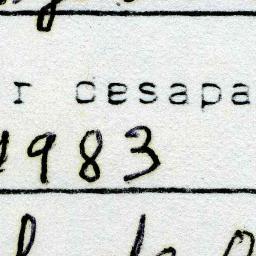 r desapa
1983